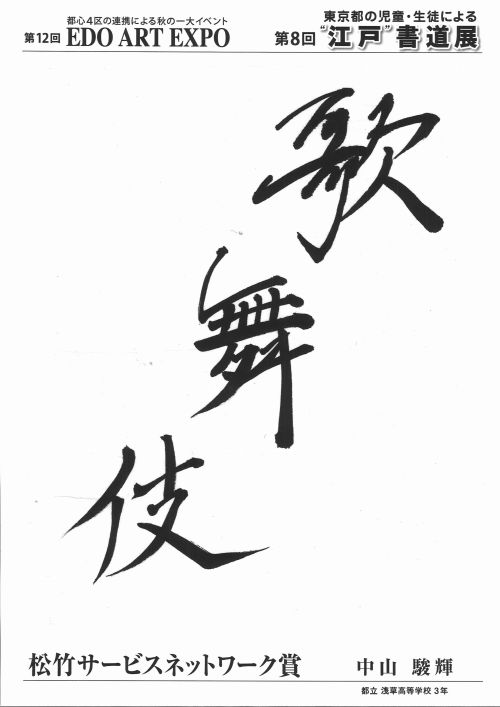 都心4区の連携による秋の一大イベント
第12回 EDO ART EXPO
東京都の児童・生徒による
第8回 “江戸”書道展
歌
舞
伎
松竹サービスネットワーク賞
中山 駿輝
都立 浅草高等学校 3年